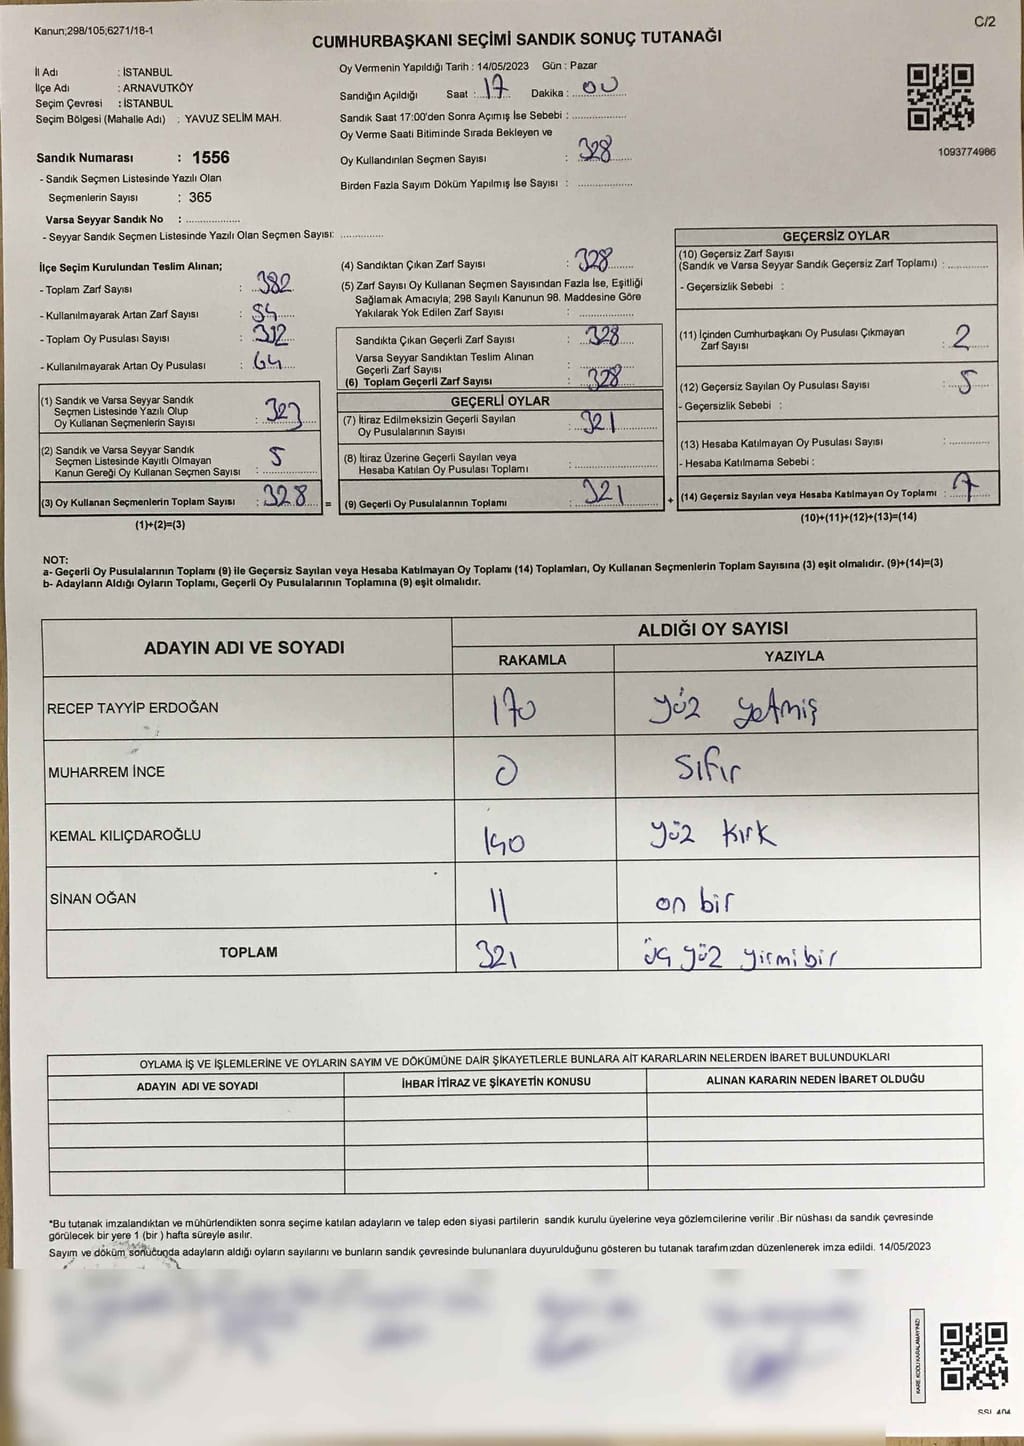 Kanun;298/105;6271/18-1
C/2
CUMHURBAŞKANI SEÇİMİ SANDIK SONUÇ TUTANAĞI
İl Adı : İSTANBUL
İlçe Adı : ARNAVUTKÖY
Seçim Çevresi : İSTANBUL
Seçim Bölgesi (Mahalle Adı) : YAVUZ SELİM MAH.
Sandık Numarası : 1556
- Sandık Seçmen Listesinde Yazılı Olan
Seçmenlerin Sayısı : 365
Varsa Seyyar Sandık No : ...................
- Seyyar Sandık Seçmen Listesinde Yazılı Olan Seçmen Sayısı: ..............
Oy Vermenin Yapıldığı Tarih : 14/05/2023 Gün : Pazar
Sandığın Açıldığı Saat : 17 Dakika : 00
Sandık Saat 17:00'den Sonra Açımış İse Sebebi : ...................
Oy Verme Saati Bitiminde Sırada Bekleyen ve
Oy Kullandırılan Seçmen Sayısı : 328
Birden Fazla Sayım Döküm Yapılmış İse Sayısı : ...................
1093774986
İlçe Seçim Kurulundan Teslim Alınan;
- Toplam Zarf Sayısı : 382
- Kullanılmayarak Artan Zarf Sayısı : 54
- Toplam Oy Pusulası Sayısı :
- Kullanılmayarak Artan Oy Pusulası : 64
(1) Sandık ve Varsa Seyyar Sandık
Seçmen Listesinde Yazılı Olup
Oy Kullanan Seçmenlerin Sayısı : 323
(2) Sandık ve Varsa Seyyar Sandık
Seçmen Listesinde Kayıtlı Olmayan
Kanun Gereği Oy Kullanan Seçmen Sayısı : 5
(3) Oy Kullanan Seçmenlerin Toplam Sayısı : 328 =
(1)+(2)=(3)
(4) Sandıktan Çıkan Zarf Sayısı : 328
(5) Zarf Sayısı Oy Kullanan Seçmen Sayısından Fazla İse, Eşitliği
Sağlamak Amacıyla; 298 Sayılı Kanunun 98. Maddesine Göre
Yakılarak Yok Edilen Zarf Sayısı : ...................
Sandıkta Çıkan Geçerli Zarf Sayısı : 328
Varsa Seyyar Sandıktan Teslim Alınan
Geçerli Zarf Sayısı : ...................
(6) Toplam Geçerli Zarf Sayısı : 328
GEÇERLİ OYLAR
(7) İtiraz Edilmeksizin Geçerli Sayılan
Oy Pusulalarının Sayısı : 321
(8) İtiraz Üzerine Geçerli Sayılan veya
Hesaba Katılan Oy Pusulası Toplamı : ...................
(9) Geçerli Oy Pusulalarının Toplamı : 321 +
GEÇERSİZ OYLAR
(10) Geçersiz Zarf Sayısı
(Sandık ve Varsa Seyyar Sandık Geçersiz Zarf Toplamı) : ..............
- Geçersizlik Sebebi :
(11) İçinden Cumhurbaşkanı Oy Pusulası Çıkmayan
Zarf Sayısı : 2
(12) Geçersiz Sayılan Oy Pusulası Sayısı : 5
- Geçersizlik Sebebi :
(13) Hesaba Katılmayan Oy Pusulası Sayısı : ..............
- Hesaba Katılmama Sebebi :
(14) Geçersiz Sayılan veya Hesaba Katılmayan Oy Toplamı : 7
(10)+(11)+(12)+(13)=(14)
NOT:
a- Geçerli Oy Pusulalarının Toplamı (9) ile Geçersiz Sayılan veya Hesaba Katılmayan Oy Toplamı (14) Toplamları, Oy Kullanan Seçmenlerin Toplam Sayısına (3) eşit olmalıdır. (9)+(14)=(3)
b- Adayların Aldığı Oyların Toplamı, Geçerli Oy Pusulalarının Toplamına (9) eşit olmalıdır.
ADAYIN ADI VE SOYADI
ALDIĞI OY SAYISI
RAKAMLA YAZIYLA
RECEP TAYYİP ERDOĞAN 170 yüz yetmiş
MUHARREM İNCE 0 sıfır
KEMAL KILIÇDAROĞLU 140 yüz kırk
SİNAN OĞAN 11 on bir
TOPLAM 321 üç yüz yirmi bir
OYLAMA İŞ VE İŞLEMLERİNE VE OYLARIN SAYIM VE DÖKÜMÜNE DAİR ŞİKAYETLERLE BUNLARA AİT KARARLARIN NELERDEN İBARET BULUNDUKLARI
ADAYIN ADI VE SOYADI İHBAR İTİRAZ VE ŞİKAYETİN KONUSU ALINAN KARARIN NEDEN İBARET OLDUĞU
*Bu tutanak imzalandıktan ve mühürlendikten sonra seçime katılan adayların ve talep eden siyasi partilerin sandık kurulu üyelerine veya gözlemcilerine verilir .Bir nüshası da sandık çevresinde
görülecek bir yere 1 (bir ) hafta süreyle asılır.
Sayım ve döküm sonucunda adayların aldığı oyların sayılarını ve bunların sandık çevresinde bulunanlara duyurulduğunu gösteren bu tutanak tarafımızdan düzenlenerek imza edildi. 14/05/2023
KARE KODU KARALAMAYINIZ!